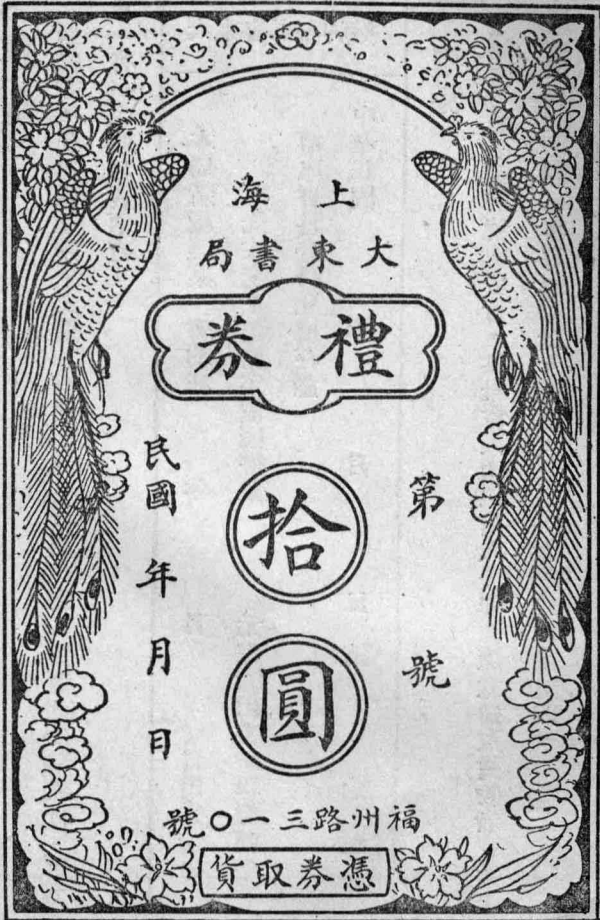 上海
大東書局
禮券
第 號
拾圓
民國 年 月 日
福州路三一〇號
憑券取貨